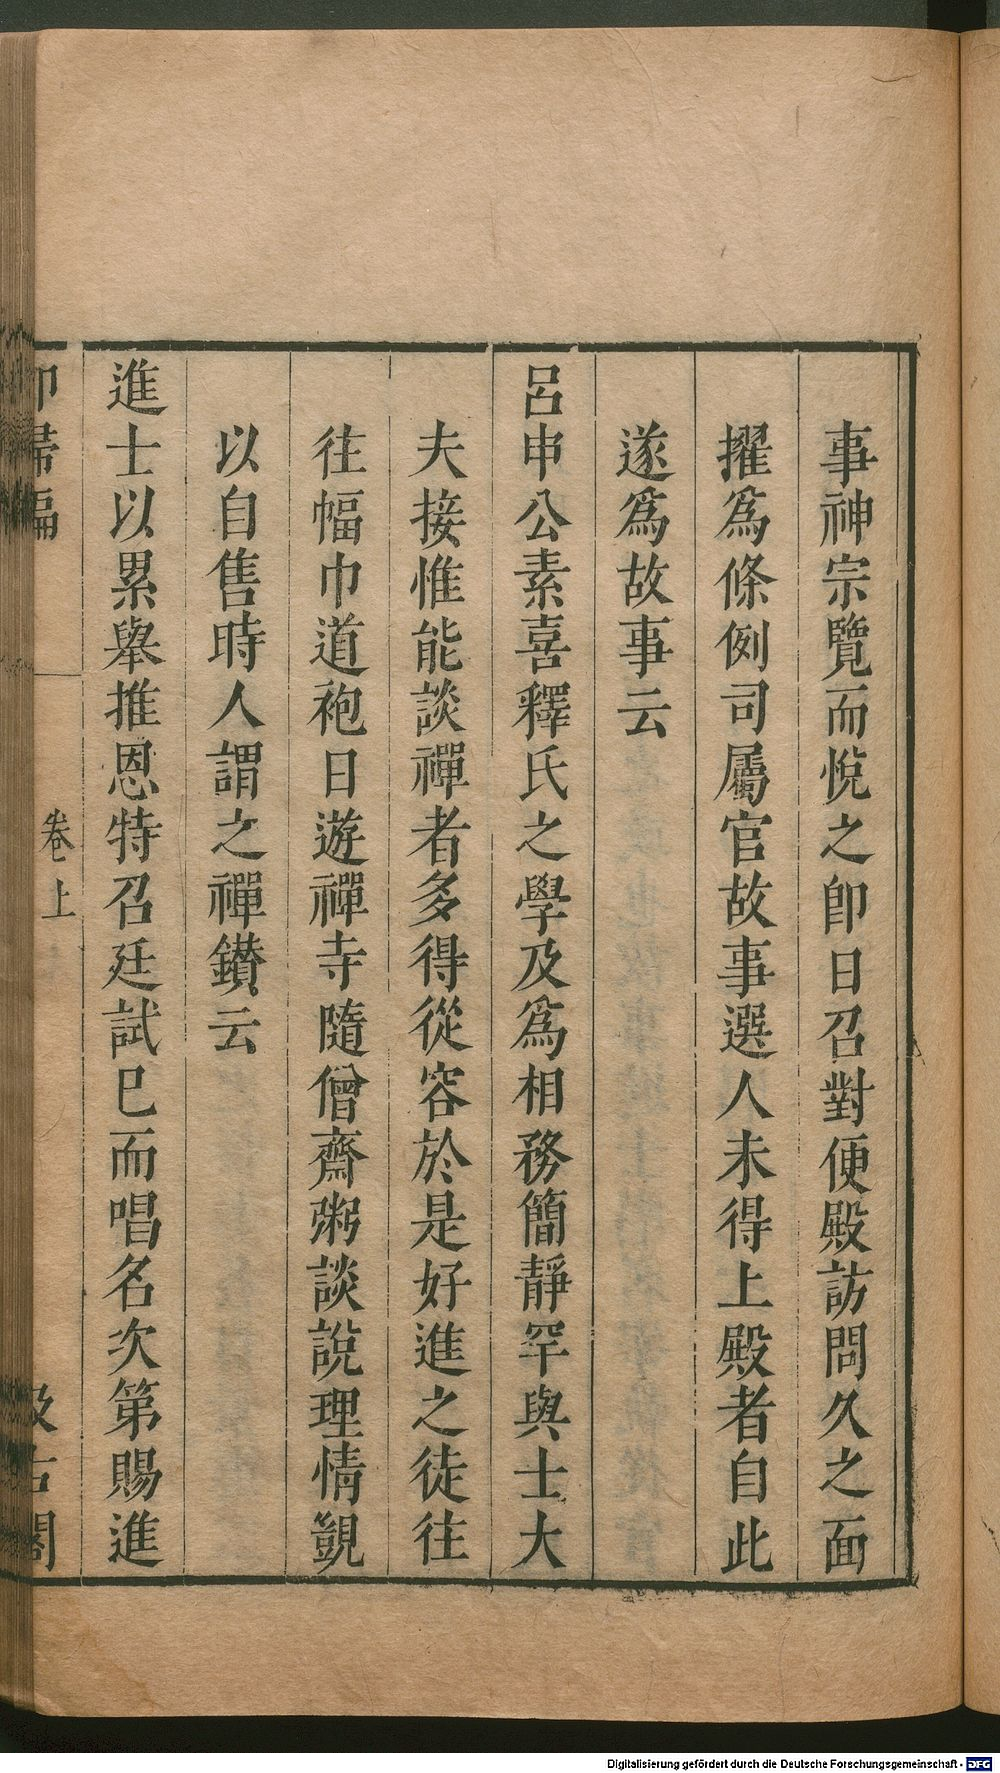 事神宗覽而悅之卽日召對便殿訪問久之面
擢爲條例司屬官故事選人未得上殿者自此
遂爲故事云
呂申公素喜釋氏之學及爲相務簡靜罕與士大
夫接惟能談禪者多得從容於是好進之徒往
往幅巾道袍日遊禪寺隨僧齋粥談說理情覬
以自售時人謂之禪鑚云
進士以累舉推恩特召廷試巳而唱名次第賜進
卷上
Digitalisierung gefördert durch die Deutsche Forschungsgemeinschaft - DFG